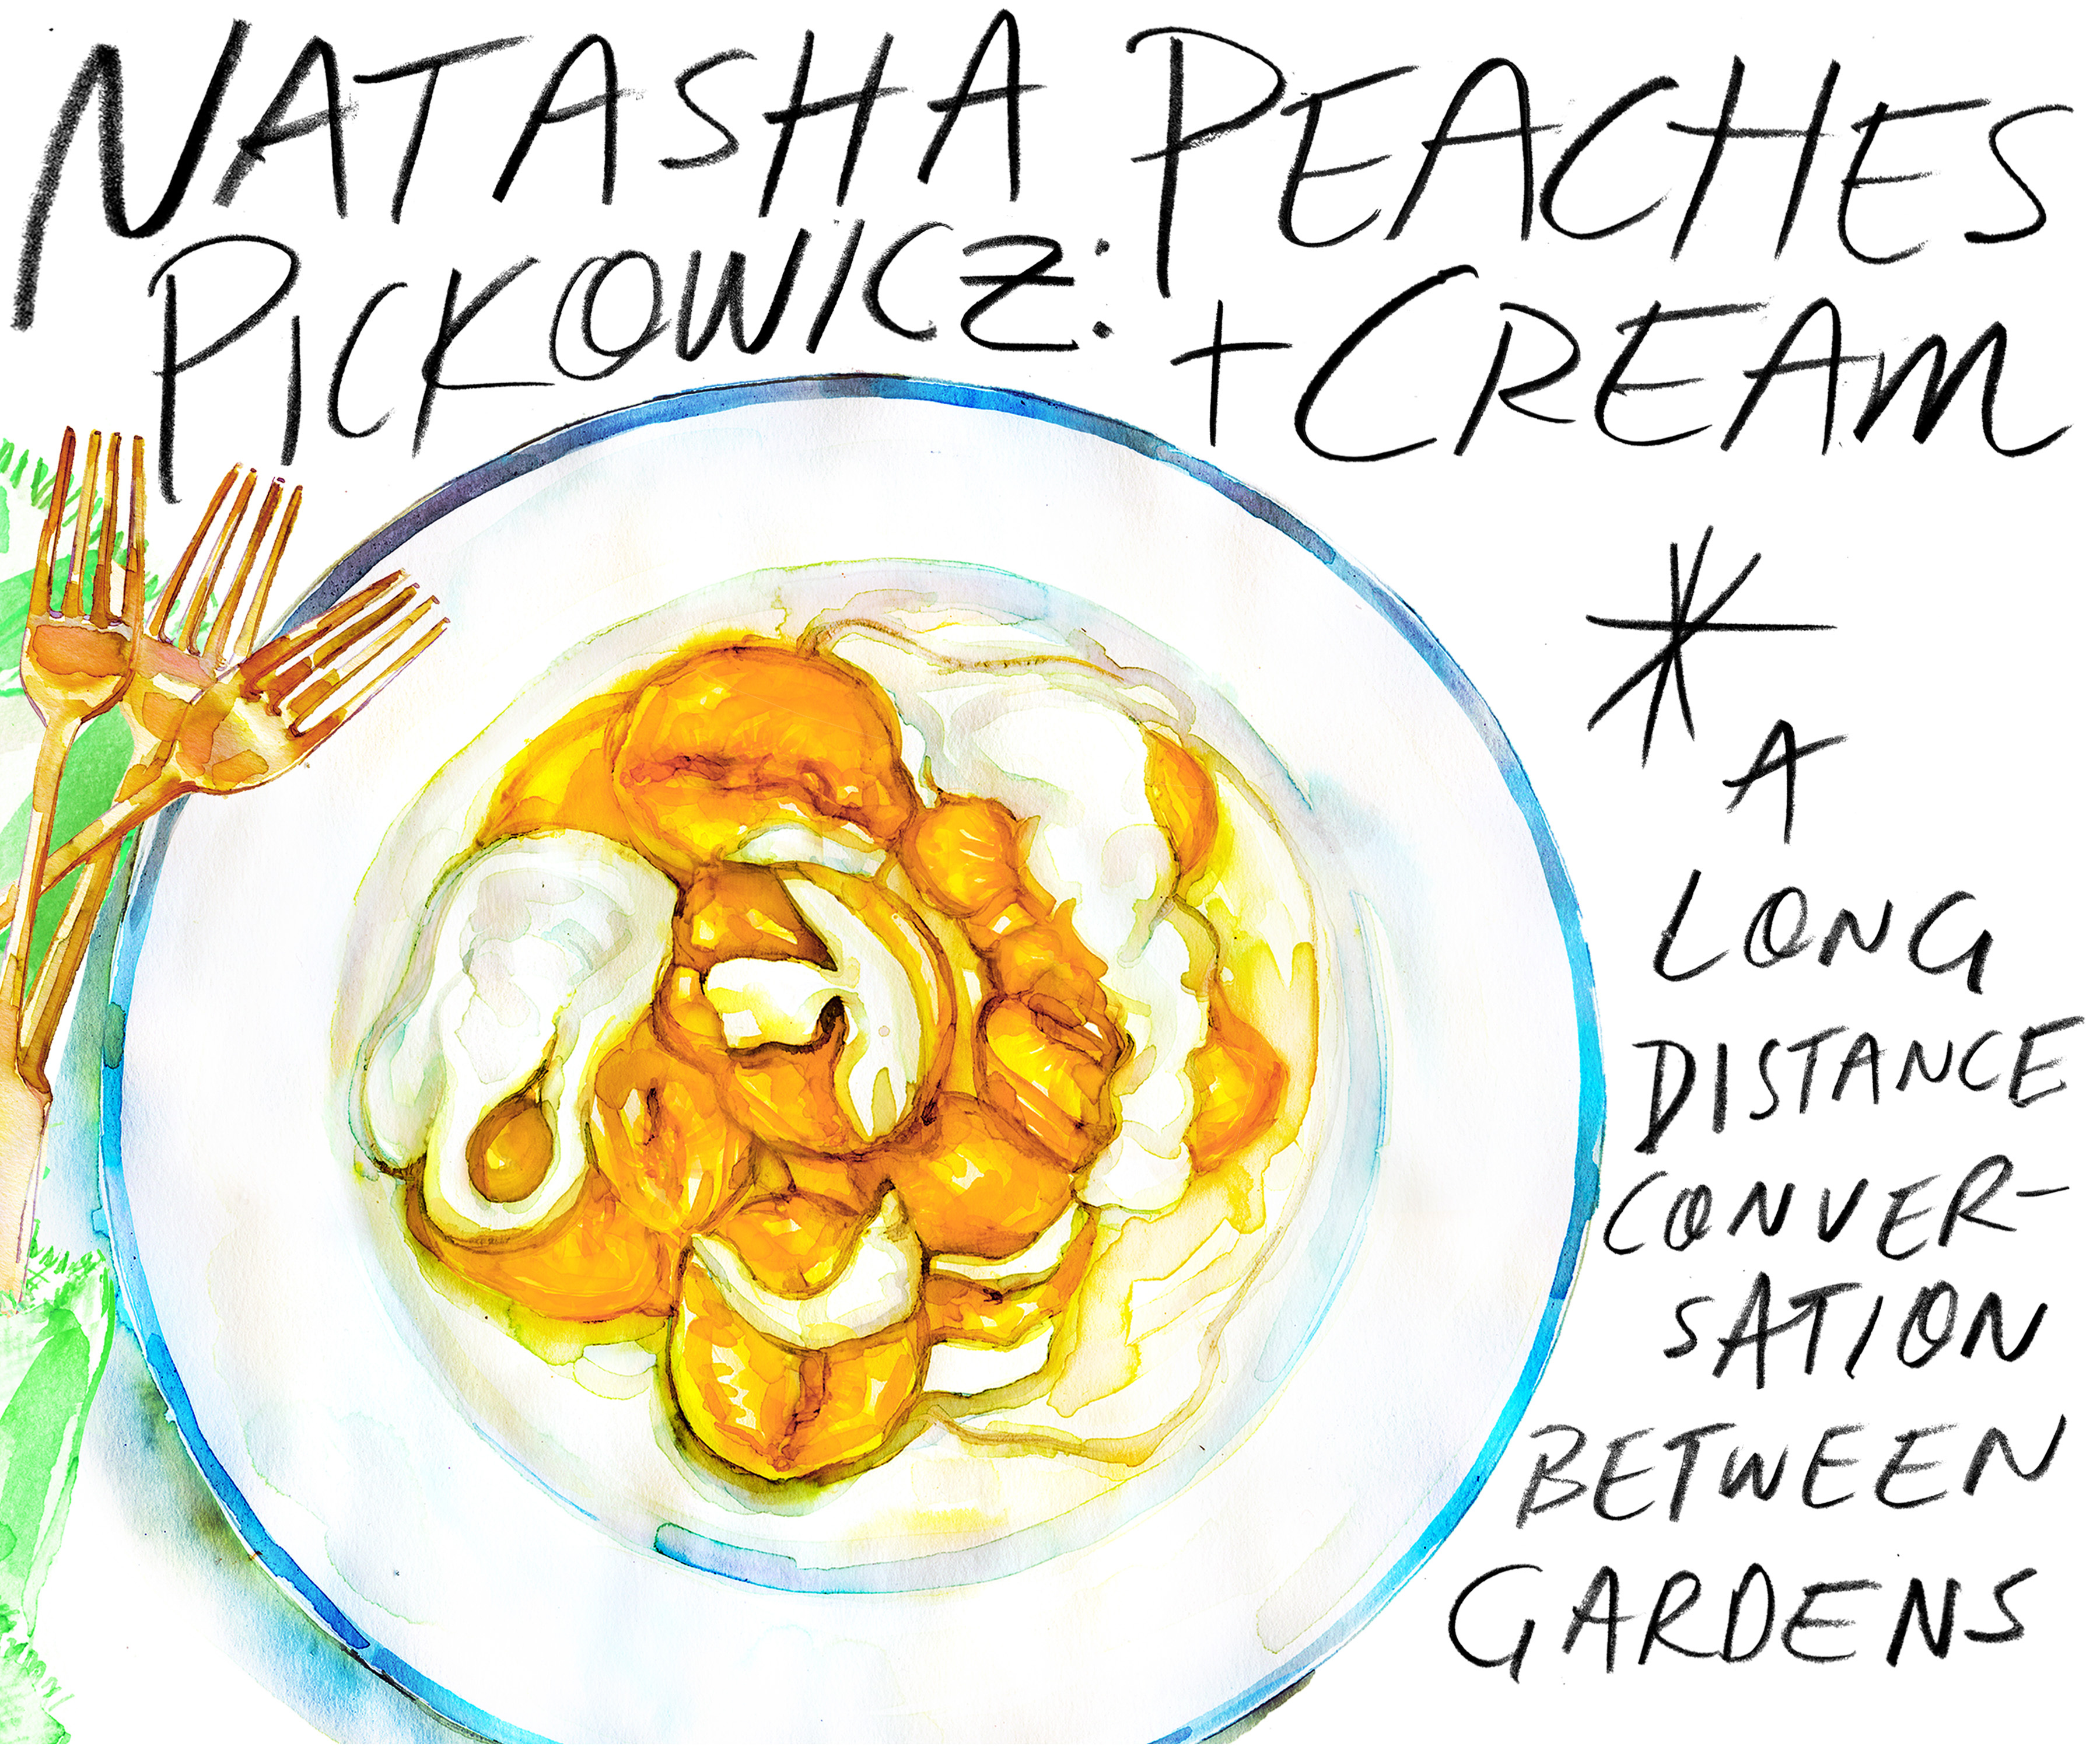 NATASHA
PICKOWICZ:
PEACHES
+ CREAM
*
A
LONG
DISTANCE
CONVER-
SATION
BETWEEN
GARDENS